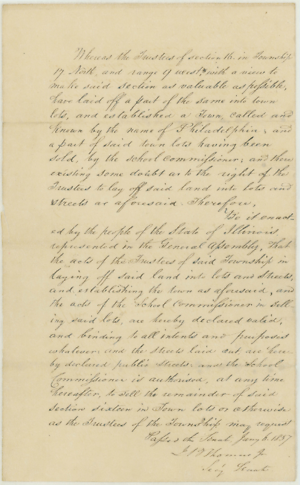 Whereas the Trustees of section 16. in Township
17 North, and range 9 west, with a view to
make said section as valuable as possible,
have laid off a part of the same into town
lots, and established a Town, called and
known by the name of Philadelphia; and
a part of said town lots having been
sold, by the school Commissioner; and there
existing some doubt as to the right of the
Trustees to lay off said land into lots and
streets as aforesaid. Therefore,
Be it enact-
ed by the people of the State of Illinois
represented in the General Assembly, That
the acts of the Trustees of said Township in
laying off said land into lots and streets,
and establishing the town as aforesaid, and
the acts of the School Commissioner in sell-
ing said lots, are hereby declared valid,
and binding to all intents and purposes
whatever; and the streets laid out are here-
by declared public streets, and the School
Commissioner is authorised, at any time
hereafter, to sell the remainder of said
section sixteen in Town lots or otherwise
as the Trustees of the Township may request
Passed the Senate Jany 6 1837
Secy Senate